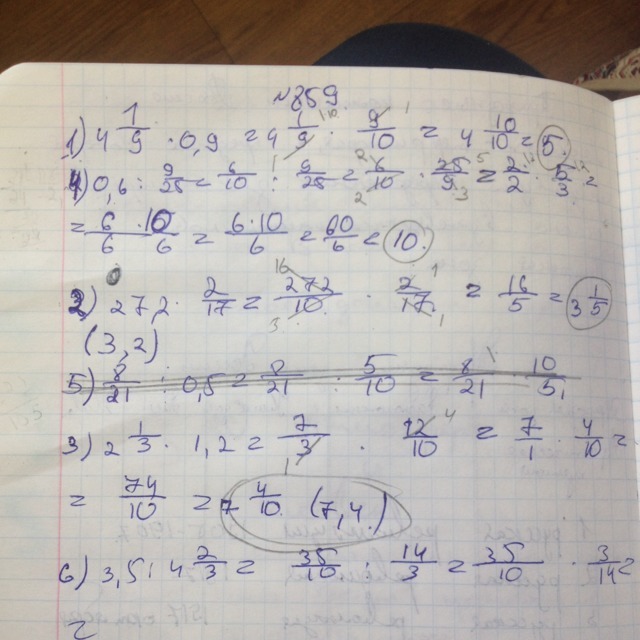 №859.
1) 4 1/9 · 0,9 = 4 1/9 · 9/10 = 4 10/10 = 5.
4) 0,6 : 9/25 = 6/10 : 9/25 = 6/10 · 25/9 = 2/2 · 5/3 =
= 6 · 10 / 6 6 = 6·10/6 = 60/6 = 10.
2) 272 · 2/17 = 272/10 · 2/17 = 16/5 = 3 1/5
(3,2)
5) 8/21 : 0,5 = 8/21 : 5/10 = 8/21 · 10/5
3) 2 1/3 · 1,2 = 7/3 · 12/10 = 7/1 · 4/10 =
= 74/10 = 7 4/10 (7,4.)
6) 3,5 : 4 2/3 = 35/10 : 14/3 = 35/10 · 3/14 =
=